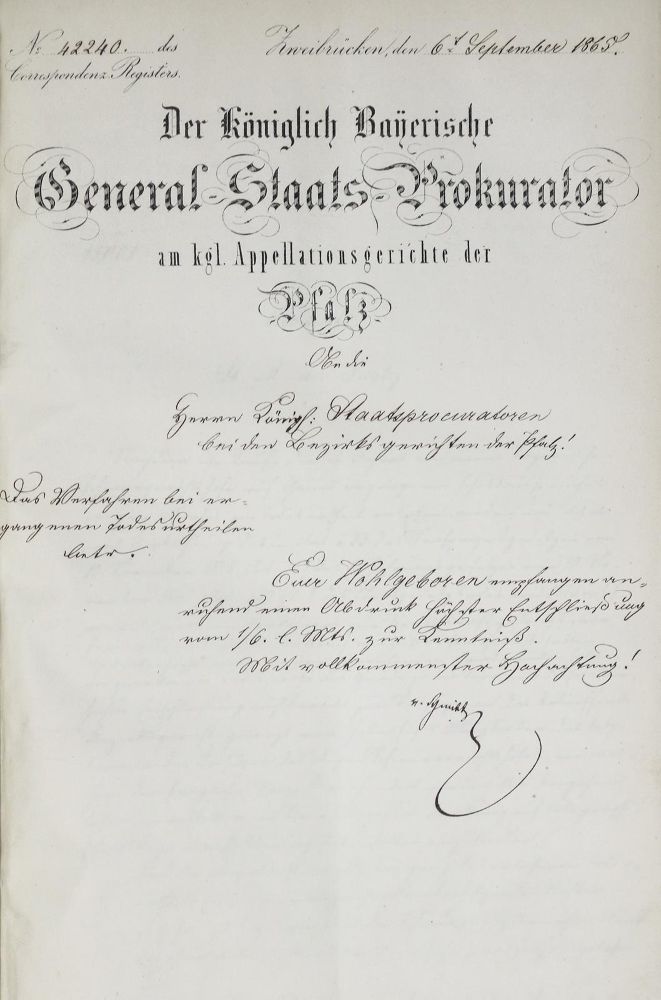 No 42240. des
Correspondenz-Registers.
Zweibrücken, den 6t September 1865.
Der Königlich Bayerische
General-Staats-Prokurator
am kgl. Appellationsgerichte der
Pfalz
An die
Herren Königl: Staatsprocuratoren
bei den Bezirksgerichten der Pfalz!
Das Verfahren bei er-
gangenen Todesurtheilen
betr.
Euer Wohlgeboren empfangen an-
ruhend einen Abdruck höchster Entschließung
vom 1/6. l. Mts. zur Kenntniß.
Mit vollkommenster Hochachtung!
v. Schmitt